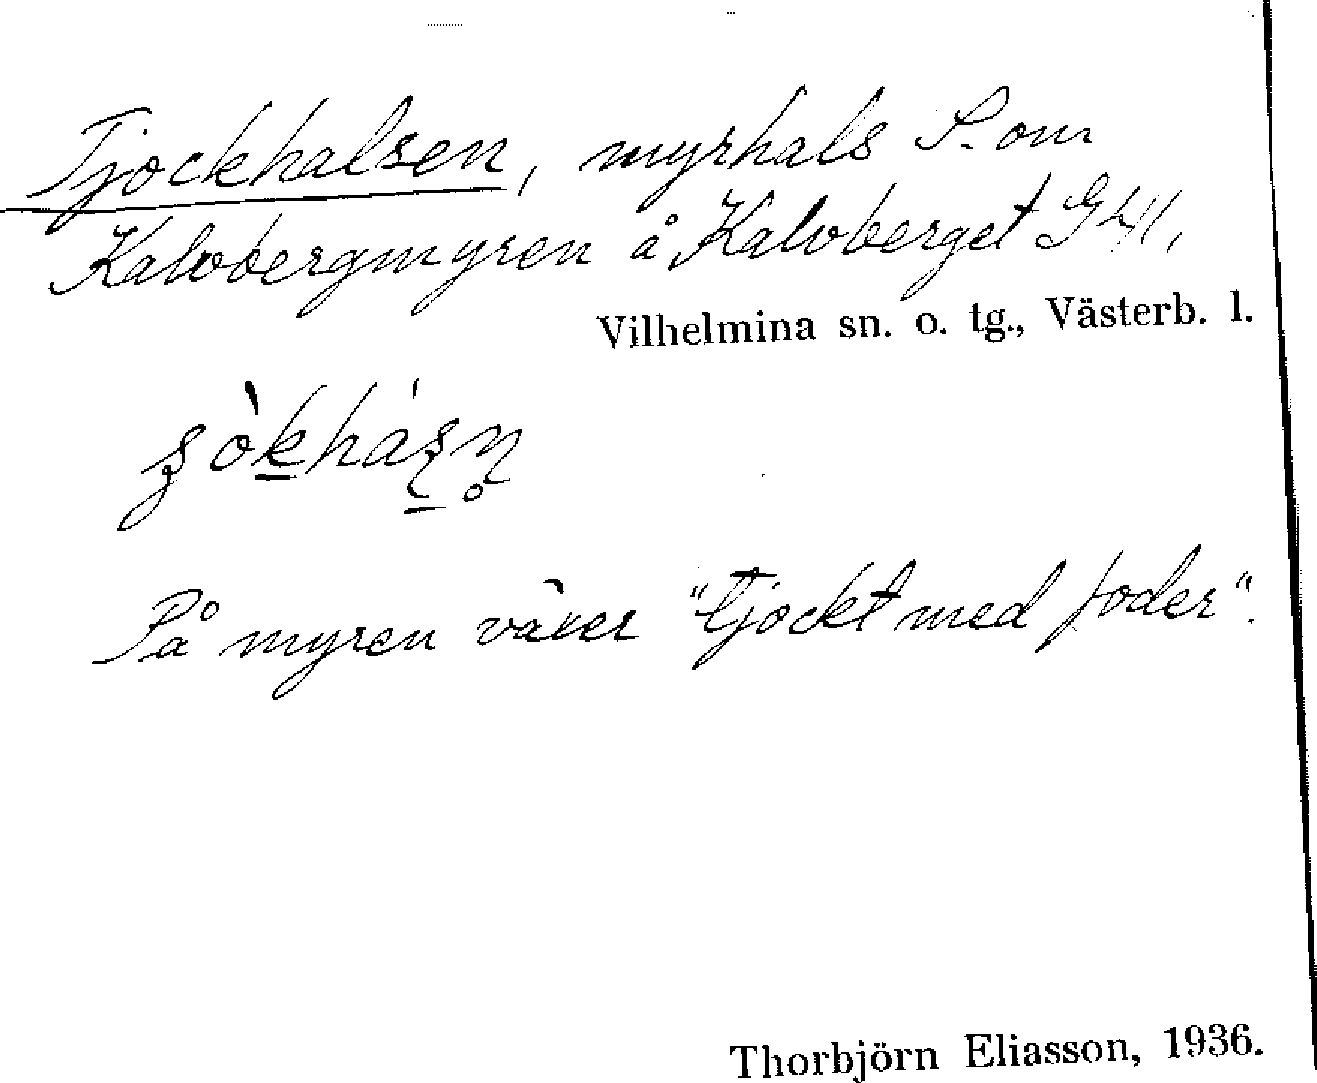 Tjockhalsen, myrhals S. om
Kalvbergmyren å Kalvberget
Vilhelmina sn. o. tg., Västerb. l.
På myren växer "tjockt med foder".
Thorbjörn Eliasson, 1936.